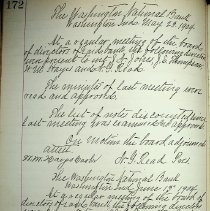 172
The Washington National Bank
Washington Indiana May 1904
At a regular meeting of the board
of directors of said bank the following directors
were present to wit
W.M. Hayes and N.G. Read
The minutes of last meeting were
read and approved.
The list of notes discounted since
last meeting was examined and approved
On motion the board adjourned
attest
W.M. Hayes Cashr N.G. Read Pres
The Washington National Bank
Washington Ind June 1904
At a regular meeting of the board of
directors of said bank the following directors